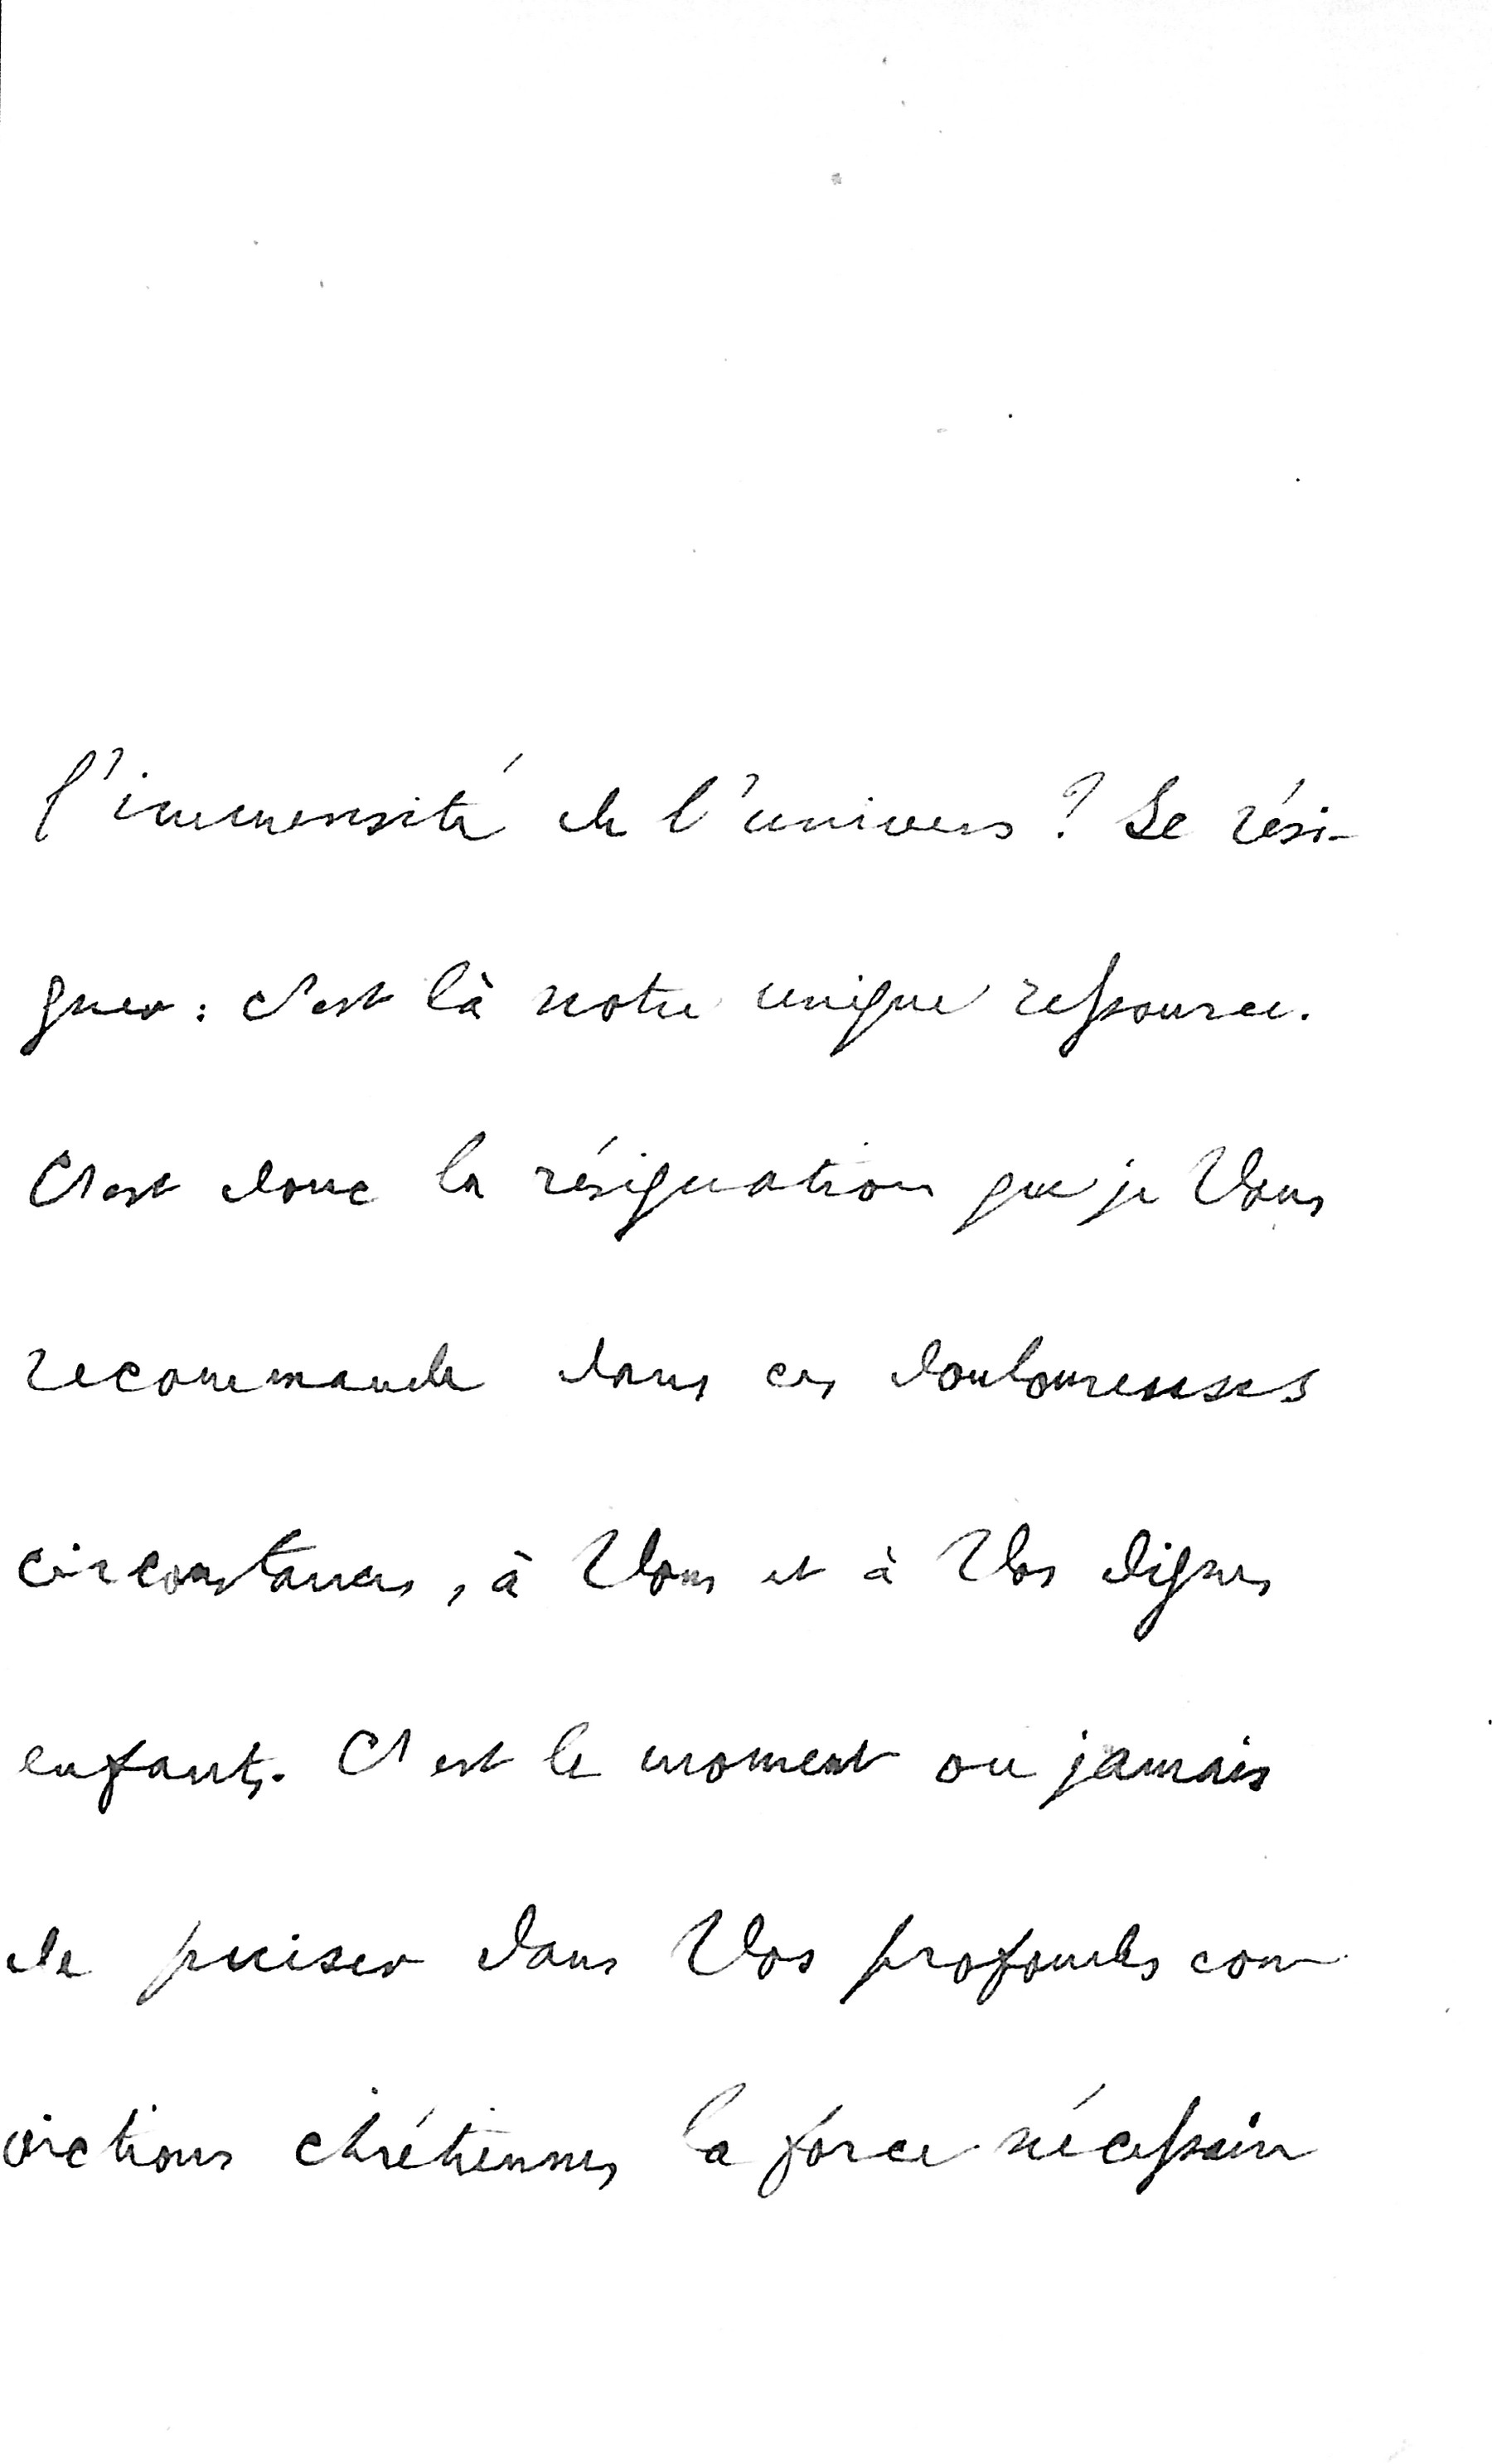 l'immensité de l'univers ? Se rési-
gner : c'est là notre unique ressource.
C'est donc la résignation que je Vous
recommande dans ces douloureuses
circonstances, à Vous et à Vos dignes
enfants. C'est le moment ou jamais
de puiser dans Vos profondes con-
victions chrétiennes la force nécessaire